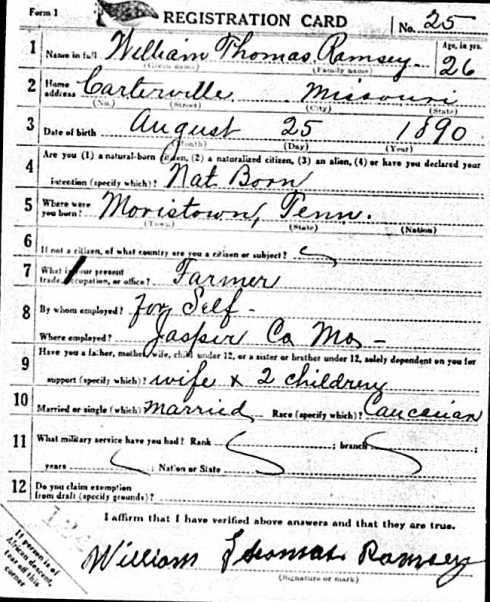 Form 1 REGISTRATION CARD No. 25
1 Name in full William Thomas Ramsey Age, in yrs. 26
(Given name) (Family name)
2 Home address Carterville Missouri
(No.) (Street) (City) (State)
3 Date of birth August 25 1890
(Month) (Day) (Year)
4 Are you (1) a natural-born citizen, (2) a naturalized citizen, (3) an alien, (4) or have you declared your
intention (specify which)? Nat Born
5 Where were you born? Moristown, Tenn.
(Town) (State) (Nation)
6 If not a citizen, of what country are you a citizen or subject?
7 What is your present trade, occupation, or office? Farmer
8 By whom employed? for Self -
Where employed? Jasper Co Mo -
9 Have you a father, mother, wife, child under 12, or a sister or brother under 12, solely dependent on you for
support (specify which)? wife & 2 children
10 Married or single (which) Married Race (specify which)? Caucasian
11 What military service have you had? Rank ; branch ;
years ; Nation or State
12 Do you claim exemption from draft (specify grounds)?
I affirm that I have verified above answers and that they are true.
If person is of African descent, tear off this corner
William Thomas Ramsey
(Signature or mark)